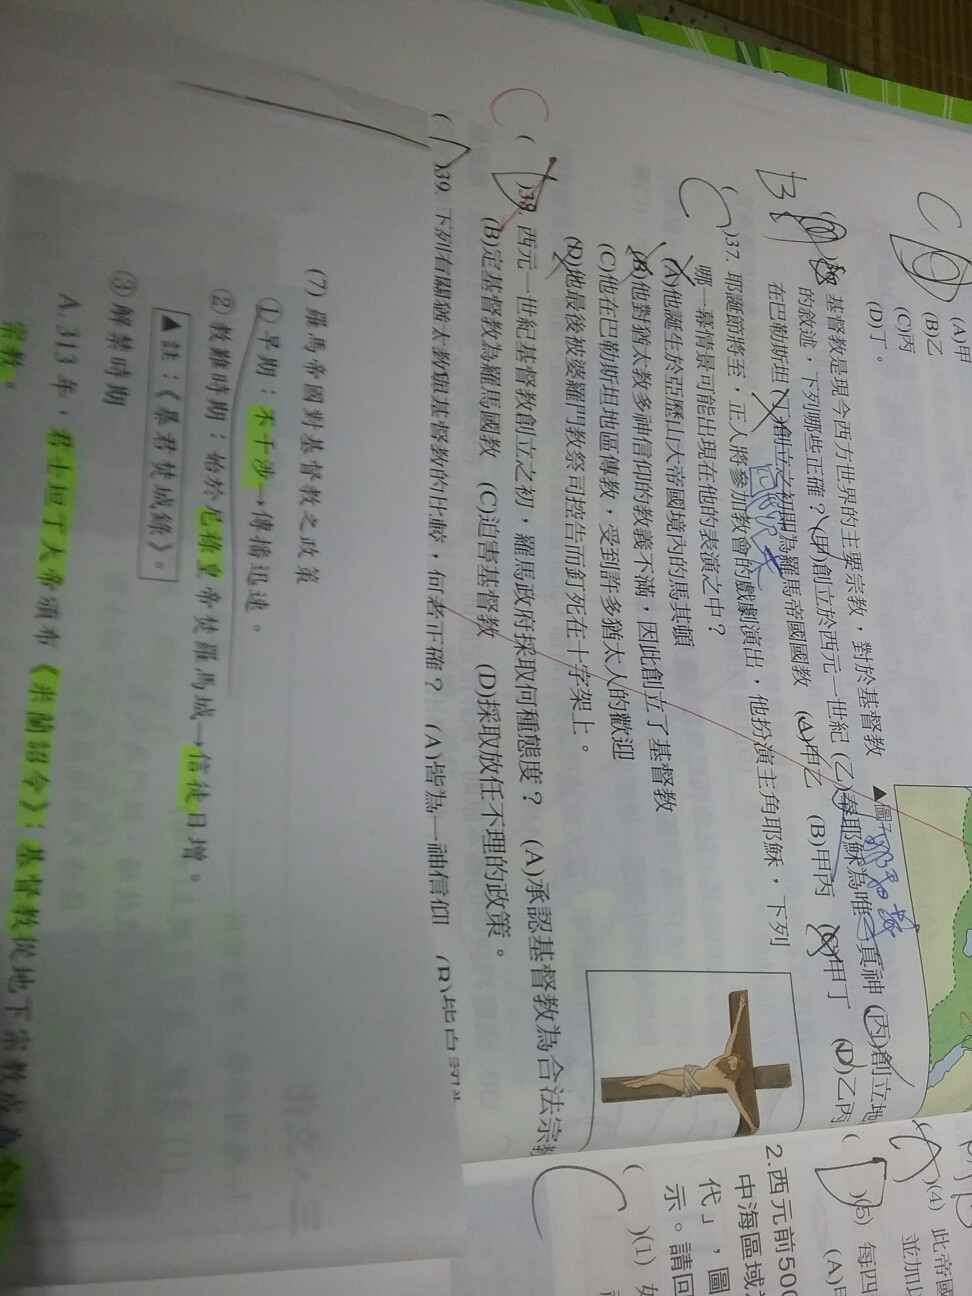 (A)甲
(B)乙
(C)丙
(D)丁。
基督教是現今西方世界的主要宗教，對於基督教
的敘述，下列哪些正確？(甲)創立於西元一世紀 (乙)奉耶穌為唯一真神 (丙)創立地
在巴勒斯坦 (丁)創立之初即為羅馬帝國國教 (A)甲乙 (B)甲丙 (C)甲丁 (D)乙丙
B
C
( )37. 耶誕節將至，正人將參加教會的戲劇演出，他扮演主角耶穌，下列
哪一幕情景可能出現在他的表演之中？
(A)他誕生於亞歷山大帝國境內的馬其頓
(B)他對猶太教多神信仰的教義不滿，因此創立了基督教
(C)他在巴勒斯坦地區傳教，受到許多猶太人的歡迎
(D)他最後被婆羅門教祭司控告而釘死在十字架上。
C
( )38. 西元一世紀基督教創立之初，羅馬政府採取何種態度？ (A)承認基督教為合法宗教
(B)定基督教為羅馬國教 (C)迫害基督教 (D)採取放任不理的政策。
( )39. 下列有關猶太教與基督教的比較，何者正確？ (A)皆為一神信仰
(7) 羅馬帝國對基督教之政策
① 早期：不干涉→傳播迅速。
② 教難時期：始於尼祿皇帝焚羅馬城→信徒日增。
▲註：《暴君焚城錄》。
③ 解禁時期
A. 313 年，君士坦丁大帝頒布《米蘭詔令》：基督教從地下宗教成為合法
宗教。
(4) 此帝國
並加以
D
( )(5) 每四
(A)
2.西元前500
中海區域
代」，圖
示。請回
C
( )(1)